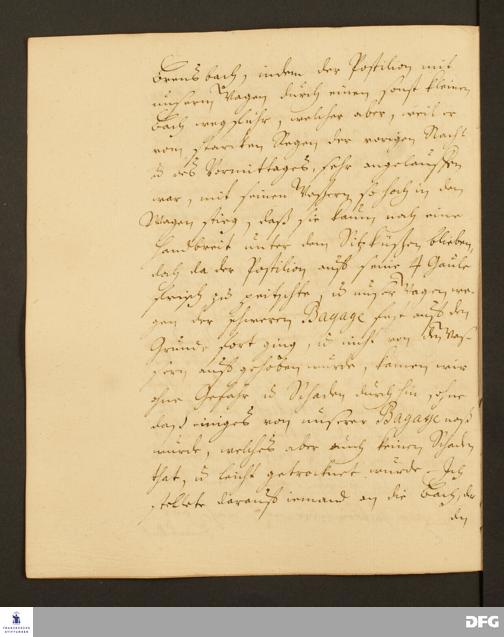 Brensbach, indem der Postilion mit
unserm Wagen durch einen sonst kleinen
Bach weg fuhr, welcher aber, weil er
vom starcken Regen der vorigen Nacht
u des Vormittages, sehr angelauffen
war, mit seinen Wassern so hoch in den
Wagen stieg, daß sie kaum noch eine
Handbreit unter dem Sitzküssen blieben,
doch da der Postilion auf seine 4 Gäule
frisch zu peitschte, u unser Wagen we-
gen der schweren Bagage fest auf dem
Grunde fort ging, u nicht von den Was-
sern auffgehoben wurde, kamen wir
ohne Gefahr u Schaden durch hin, ohne
daß einiges von unserer Bagage naß
wurde, welches aber auch keinen Schaden
that, u leicht getrocknet wurde. Ich
stellete darauff iemand an die Bach, der
den
FRANCKESCHE STIFTUNGEN
DFG